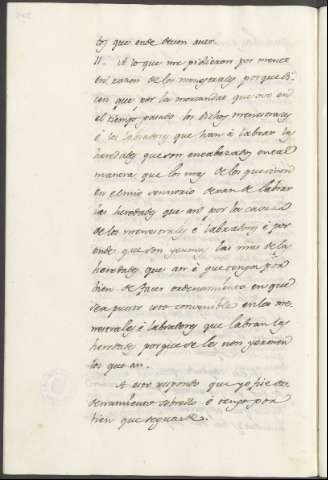 tos que ende deven aver.
II. A lo que me pidieron por mercet
en razon de los menestrales, porque di-
cen que por la mortandat que ovo en
el tiempo pasado los dichos menestrales
é los labradores que han á labrar las
heredades que son encabazados en tal
manera que los mas de los que viven
en el mio señorio dexan de labrar
las heredades que an por la careza
de los menestrales é labradores é por
ende que son yermas las mas de las
heredades que an é que tenga por
bien de facer ordenamiento en que
sea puesto coto convenible en los me-
nestrales é labradores que labran las
heredades porque se les non yermen
los que an.
A esto respondo que yo fice or-
denamiento sobrello é tengo por
bien que se guarde.